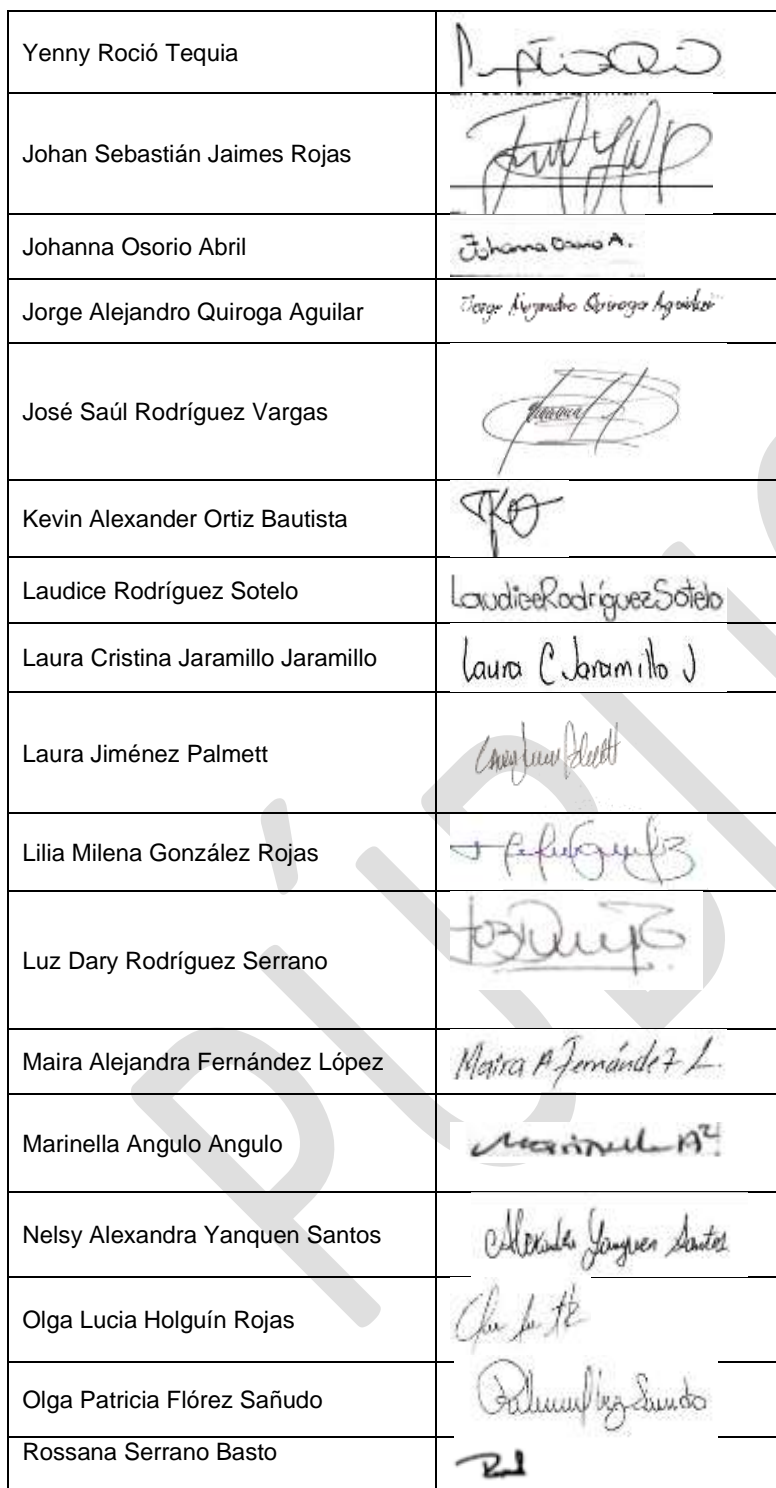 Yenny Roció Tequia
Johan Sebastián Jaimes Rojas
Johanna Osorio Abril
Johanna Osorio A.
Jorge Alejandro Quiroga Aguilar
Jorge Alejandro Quiroga Aguilar
José Saúl Rodríguez Vargas
Kevin Alexander Ortiz Bautista
Laudice Rodríguez Sotelo
LaudiceRodríguezSotelo
Laura Cristina Jaramillo Jaramillo
Laura C Jaramillo J
Laura Jiménez Palmett
Lilia Milena González Rojas
Luz Dary Rodríguez Serrano
Maira Alejandra Fernández López
Maira A Fernández L.
Marinella Angulo Angulo
Marinella A²
Nelsy Alexandra Yanquen Santos
Alexandra Yanquen Santos
Olga Lucia Holguín Rojas
Olga Patricia Flórez Sañudo
Rossana Serrano Basto